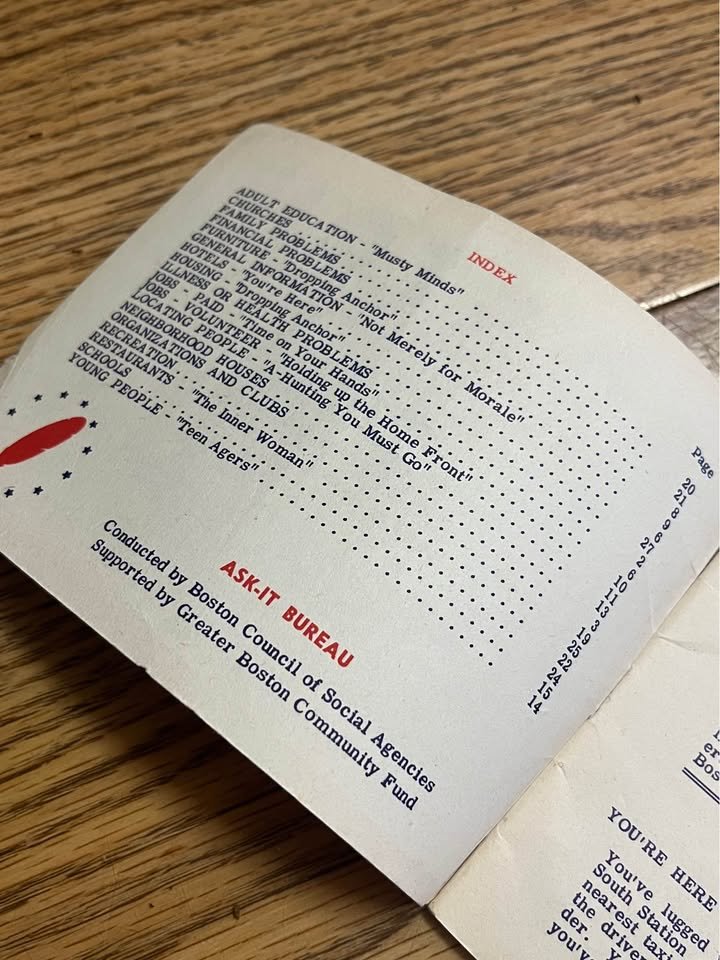 INDEX
Page
ADULT EDUCATION - "Musty Minds" 20
CHURCHES 21
FAMILY PROBLEMS 8
FINANCIAL PROBLEMS 9
FURNITURE - "Dropping Anchor" 6
GENERAL INFORMATION - "Not Merely for Morale" 27
HOTELS - "You're Here" 2
HOUSING - "Dropping Anchor" 6
ILLNESS OR HEALTH PROBLEMS 10
JOBS - PAID - "Time on Your Hands" 11
JOBS - VOLUNTEER - "Holding up the Home Front" 13
LOCATING PEOPLE - "A-Hunting You Must Go" 3
NEIGHBORHOOD HOUSES 19
ORGANIZATIONS AND CLUBS 25
RECREATION 22
RESTAURANTS - "The Inner Woman" 24
SCHOOLS 15
YOUNG PEOPLE - "Teen Agers" 14
ASK-IT BUREAU
Conducted by Boston Council of Social Agencies
Supported by Greater Boston Community Fund
YOU'RE HERE
You've lugged
South Station
nearest
the
der.
you've